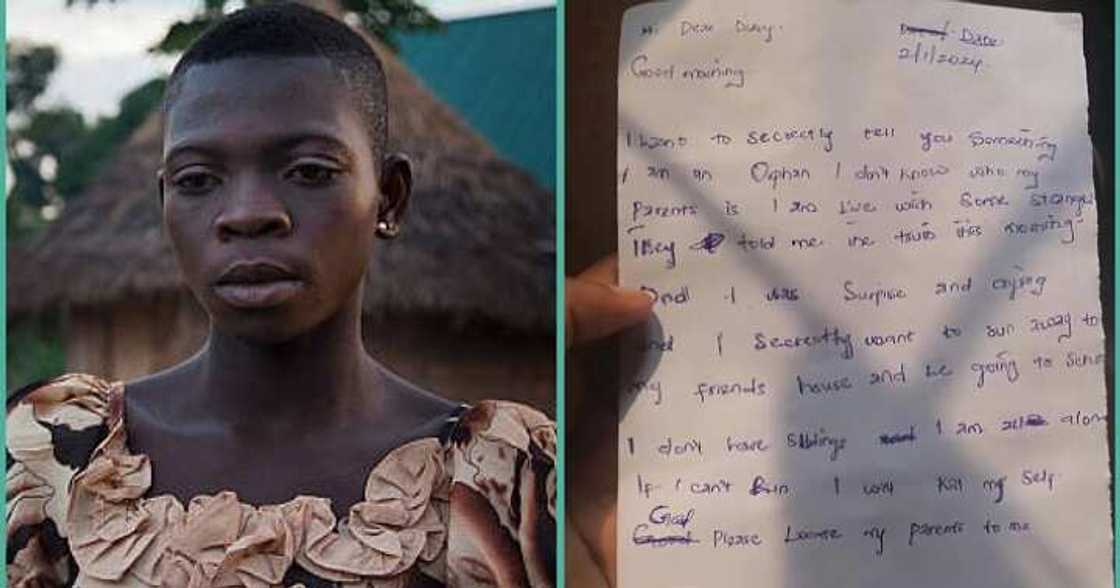 Dear Diary.
Date
2/1/2024.
Good morning
I want to secretly tell you something
I am an Orphan I don't know who my
parents is I am live with some
They told me the truth this morning.
And I was Surprise and crying
and I secreetly want to run away to
my friends house and be going to
I don't have siblings I am alone
If I can't Run I will Kill my Self
God
Please Locate my parents to me